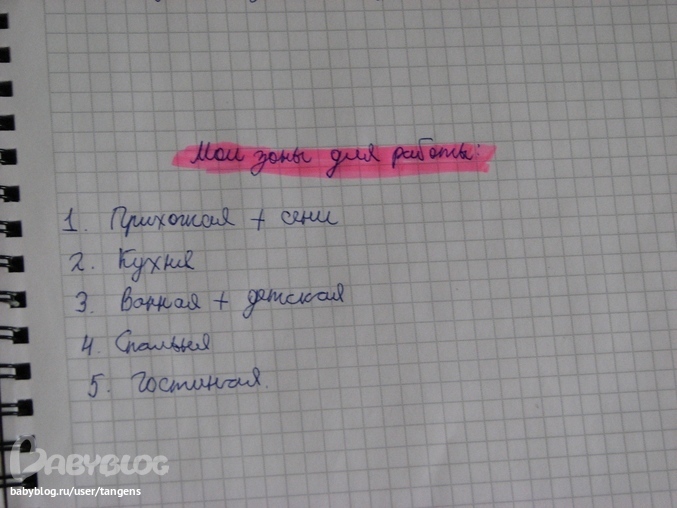 Мои зоны для работы:
1. Прихожая + сени
2. Кухня
3. Ванная + детская
4. Спальня
5. Гостиная.
BABYBLOG
babyblog.ru/user/tangens